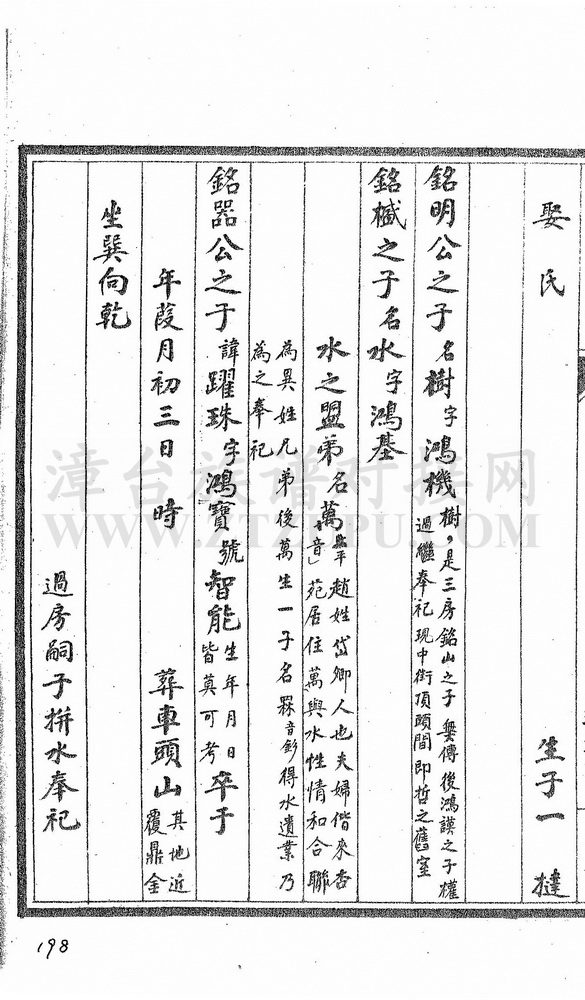 娶氏 生子一撻
銘明公之子名樹字鴻機樹，是三房銘山之子無傳後鴻謨之子權
過繼奉祀現中街頂頭間即哲之舊室
銘樾之子名水字鴻基
水之盟弟名萬「音」平趙姓岱鄉人也夫婦偕來杏
苑居住萬與水性情和合聯
為異姓兄弟後萬生一子名槑音得水遺業乃
為之奉祀
銘器公之子諱躍珠字鴻寶號智能生年月日皆莫可考卒于
年葭月初三日 時 葬車頭山其地近覆鼎金
坐巽向乾
過房嗣子拼水奉祀
198
漳台族谱对接网
WWW.ZTZUPU.COM